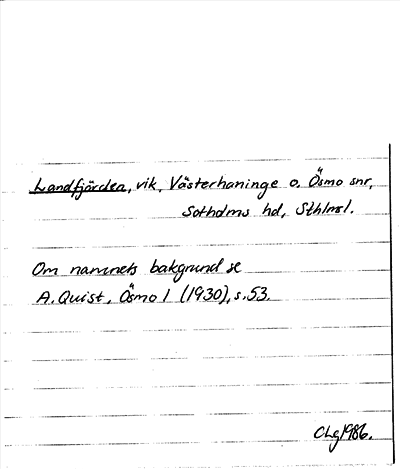 Landfjärden, vik, Västerhaninge o. Ösmo snr,
Sotholms hd, Sthlmsl.
Om namnets bakgrund se
A. Quist, Ösmo 1 (1930), s. 53.
CLg 1986.